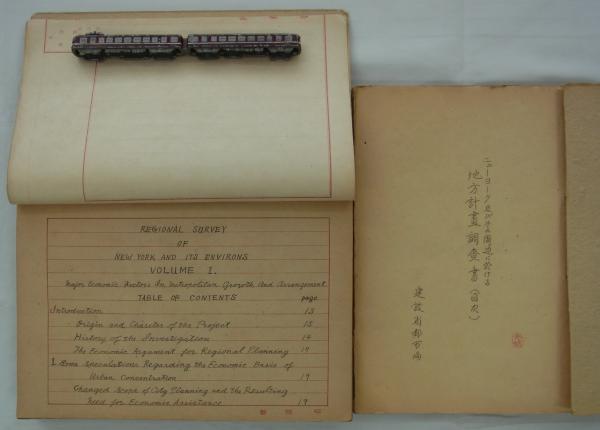 REGIONAL SURVEY
OF
NEW YORK AND ITS ENVIRONS
VOLUME I.
Major Economic Factors In Metropolitan Growth And Arrangement
TABLE OF CONTENTS page
Introduction 13
Origin and Charter of the Project 15
History of the Investigation 14
The Economic Argument for Regional Planning 17
I. Some Speculations Regarding the Economic Basis of
Urban Concentration 19
Changed Scope of City Planning and the Resulting
Need for Economic Assistance 19
ニューヨーク及びその周辺に於ける
地方計畫調査書（目次）
建設省都市局